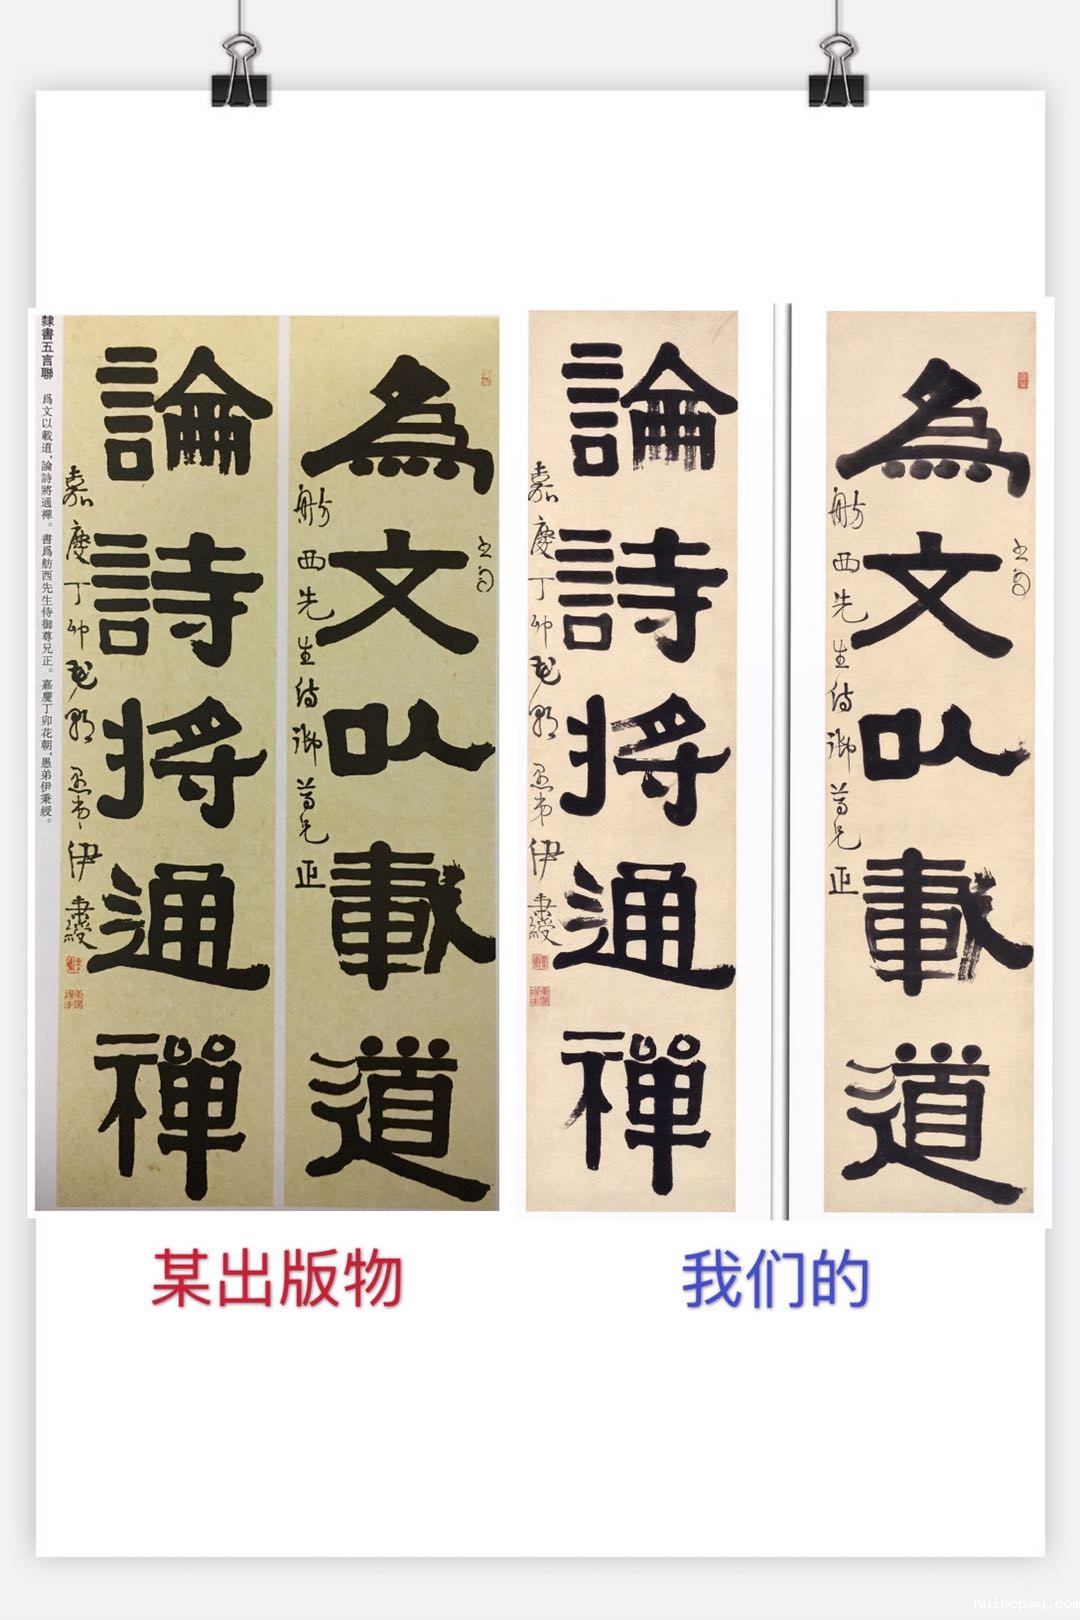 隸書五言聯 爲文以載道，論詩將通禪。書爲舫西先生侍御尊兄正。嘉慶丁卯花朝，愚弟伊秉綬。
為文以載道
舫西先生侍御尊兄正
論詩將通禪
嘉慶丁卯花朝愚弟伊秉綬
為文以載道
舫西先生侍御尊兄正
論詩將通禪
嘉慶丁卯花朝愚弟伊秉綬
某出版物
我们的
huibopay.com